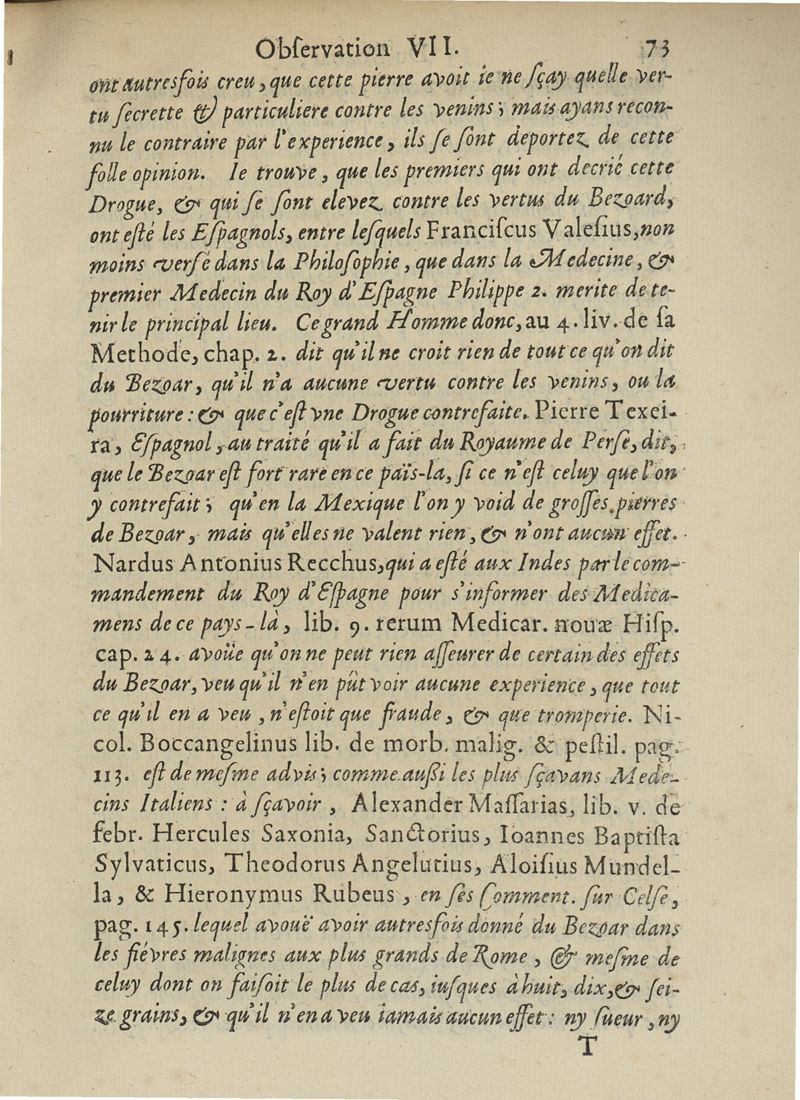 Obſervation VII. 73
ont autresfois creu, que cette pierre avoit ie ne ſçay quelle ver-
tu ſecrette & particuliere contre les venins; mais ayans recon-
nu le contraire par l'experience, ils ſe ſont deportez de cette
folle opinion. Ie trouve, que les premiers qui ont decrié cette
Drogue, & qui ſe ſont elevez contre les vertus du Bezoard,
ont eſté les Eſpagnols, entre leſquels Franciſcus Valeſius, non
moins verſé dans la Philoſophie, que dans la Medecine, &
premier Medecin du Roy d'Eſpagne Philippe 2. merite de te-
nir le principal lieu. Ce grand Homme donc, au 4. liv. de ſa
Methode, chap. 2. dit qu'il ne croit rien de tout ce qu'on dit
du Bezoar, qu'il n'a aucune vertu contre les venins, ou la
pourriture: & que c'eſt vne Drogue contrefaite. Pierre Texei-
ra, Eſpagnol, au traité qu'il a fait du Royaume de Perſe, dit,
que le Bezoar eſt fort rare en ce païs-la, ſi ce n'eſt celuy que l'on
y contrefait; qu'en la Mexique l'on y void de groſſes pierres
de Bezoar, mais qu'elles ne valent rien, & n'ont aucun effet.
Nardus Antonius Recchus, qui a eſté aux Indes par le com-
mandement du Roy d'Eſpagne pour s'informer des Medica-
mens de ce pays-là, lib. 9. rerum Medicar. nouæ Hiſp.
cap. 24. avoüe qu'on ne peut rien aſſeurer de certain des effets
du Bezoar, veu qu'il n'en pût voir aucune experience, que tout
ce qu'il en a veu, n'eſtoit que fraude, & que tromperie. Ni-
col. Boccangelinus lib. de morb. malig. & peſtil. pag.
113. eſt de meſme advis; comme auſſi les plus ſçavans Mede-
cins Italiens: à ſçavoir, Alexander Maſſarias, lib. v. de
febr. Hercules Saxonia, Sanctorius, Ioannes Baptiſta
Sylvaticus, Theodorus Angelutius, Aloiſius Mundel-
la, & Hieronymus Rubeus, en ſes Comment. ſur Celſe,
pag. 145. lequel avouë avoir autresfois donné du Bezoar dans
les fiévres malignes aux plus grands de Rome, & meſme de
celuy dont on faiſoit le plus de cas, iuſques à huit, dix, & ſei-
ze grains, & qu'il n'en a veu iamais aucun effet: ny ſueur, ny
T